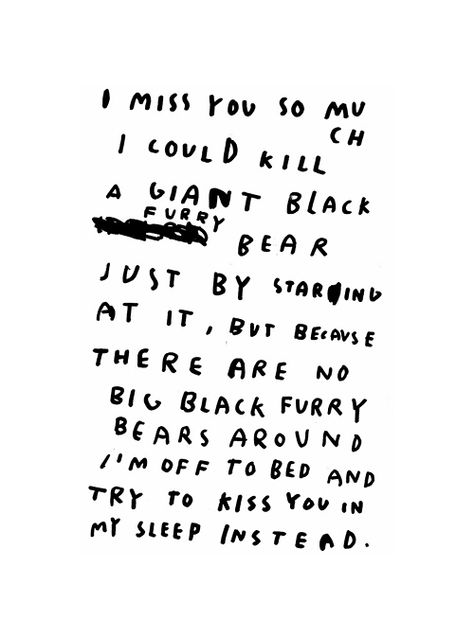 I MISS YOU SO MU
CH
I COULD KILL
A GIANT BLACK
FURRY
BEAR
JUST BY STARING
AT IT, BUT BECAUSE
THERE ARE NO
BIG BLACK FURRY
BEARS AROUND
I'M OFF TO BED AND
TRY TO KISS YOU IN
MY SLEEP INSTEAD.